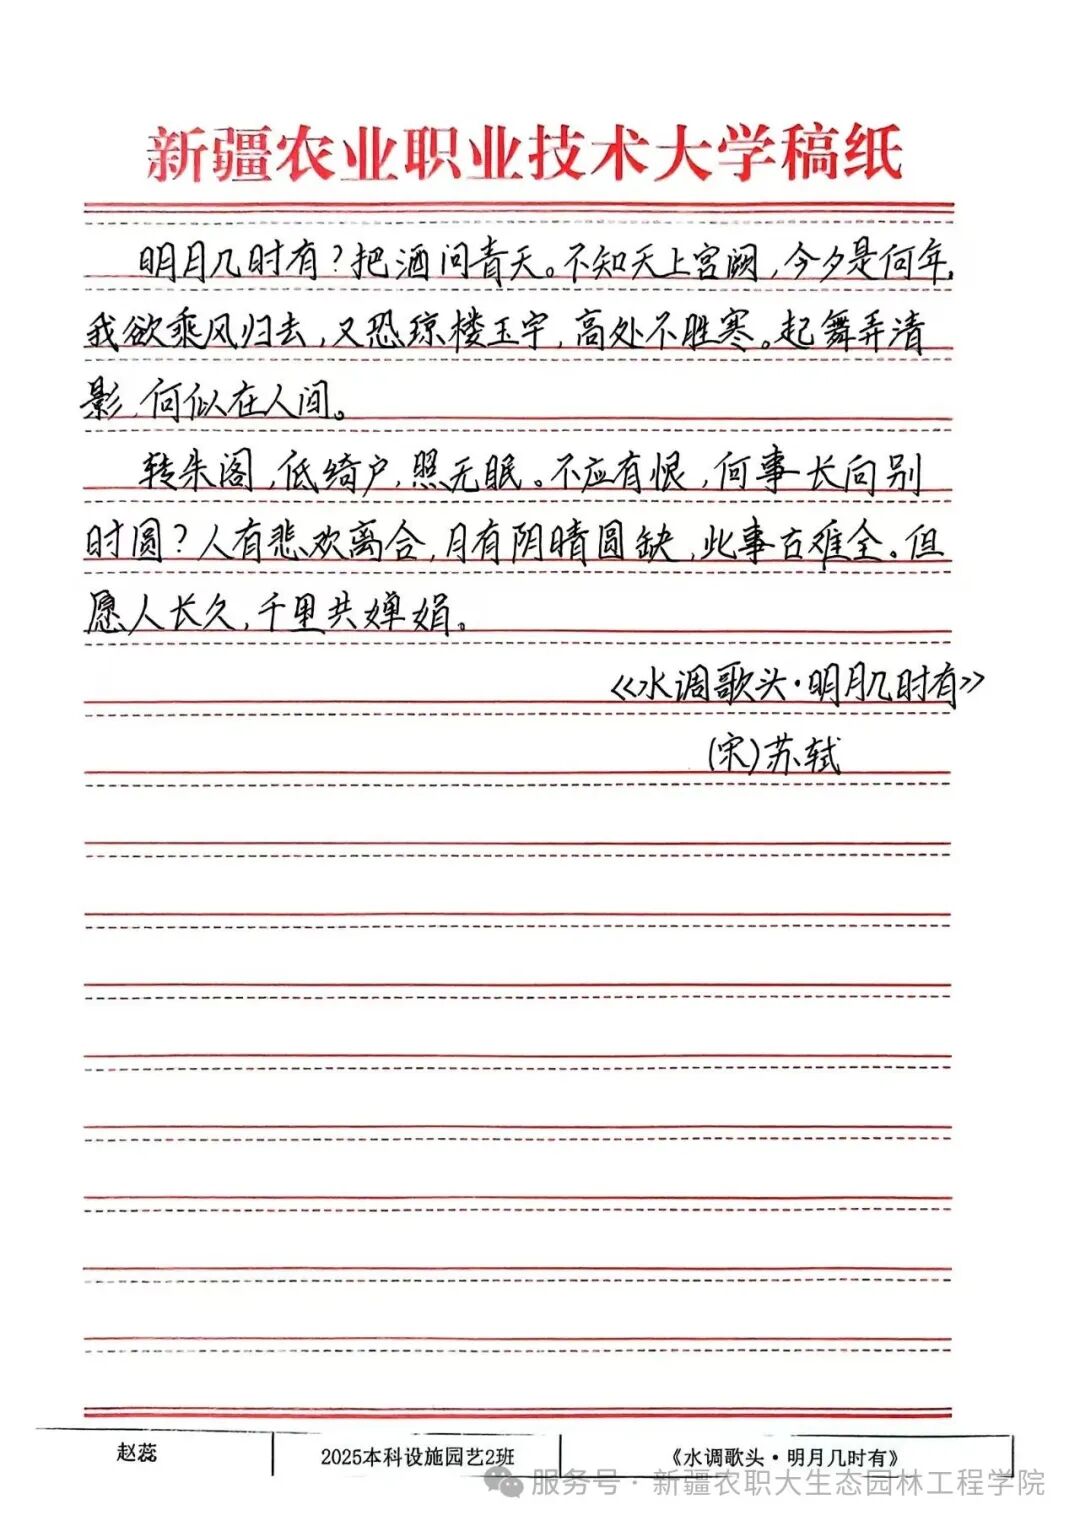 新疆农业职业技术大学稿纸
明月几时有？把酒问青天。不知天上宫阙，今夕是何年，
我欲乘风归去，又恐琼楼玉宇，高处不胜寒。起舞弄清
影，何似在人间。
转朱阁，低绮户，照无眠。不应有恨，何事长向别
时圆？人有悲欢离合，月有阴晴圆缺，此事古难全。但
愿人长久，千里共婵娟。
《水调歌头·明月几时有》
(宋)苏轼
赵蕊 2025本科设施园艺2班 《水调歌头·明月几时有》
服务号·新疆农职大生态园林工程学院